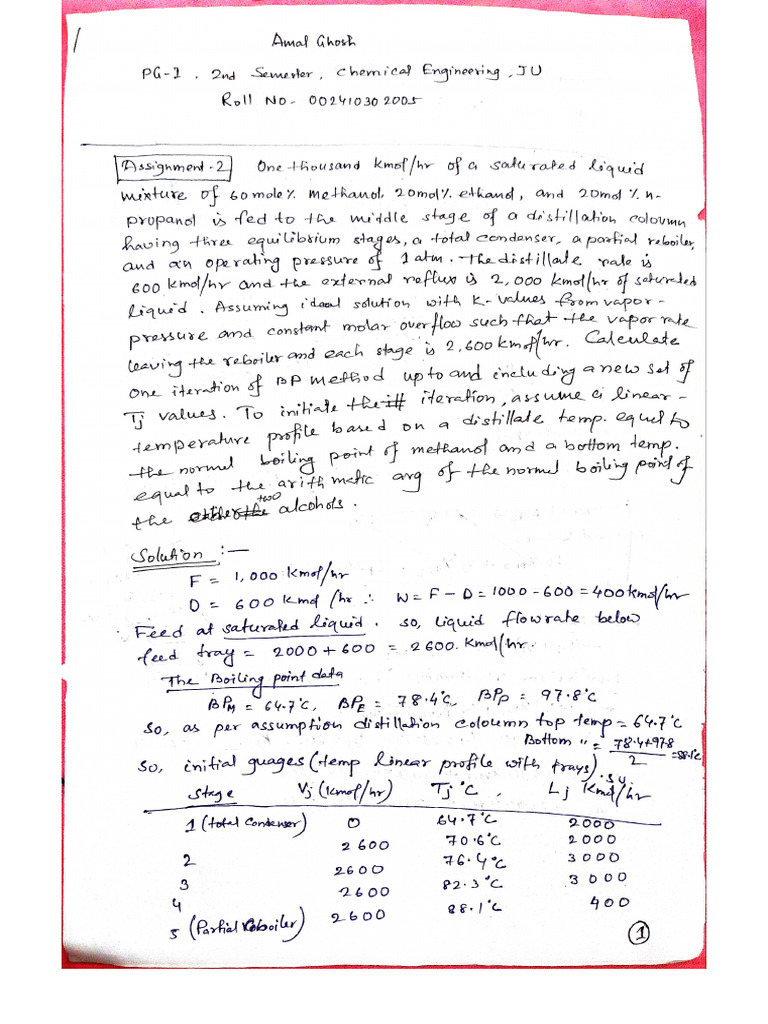 1
Amal Ghosh
PG-I . 2nd Semester, Chemical Engineering, JU
Roll No- 002410302005
Assignment-2 One thousand kmol/hr of a saturated liquid
mixture of 60mole% methanol, 20mol% ethanol, and 20mol% n-
propanol is fed to the middle stage of a distillation coloumn
having three equilibrium stages, a total condenser, a partial reboiler,
and an operating pressure of 1 atm. The distillate rate is
600 kmol/hr and the external reflux is 2,000 kmol/hr of saturated
liquid. Assuming ideal solution with K-values from vapor-
pressure and constant molar overflow such that the vapor rate
leaving the reboiler and each stage is 2,600 kmol/hr. Calculate
one iteration of BP method upto and including a new set of
Tj values. To initiate the iteration, assume a linear-
temperature profile based on a distillate temp. equal to
the normal boiling point of methanol and a bottom temp.
equal to the arithmatic avg of the normal boiling point of
the two alcohols.
Solution :—
F = 1,000 kmol/hr
D = 600 kmol/hr ∴ W = F - D = 1000 - 600 = 400 kmol/hr
Feed at saturated liquid. so, liquid flowrate below
feed tray = 2000 + 600 = 2600. kmol/hr.
The Boiling point data
BPM = 64.7°C, BPE = 78.4°C, BPP = 97.8°C
So, as per assumption distillation coloumn top temp = 64.7°C
Bottom " = 78.4+97.8/2 = 88.1°C
So, initial guages (temp linear profile with trays).
Stage Vj (kmol/hr) Tj °C, Lj kmol/hr
1 (total Condenser) 0 64.7°C 2000
2 2600 70.6°C 2000
3 2600 76.4°C 3000
4 2600 82.3°C 3000
5 (Partial Reboiler) 2600 88.1°C 400
1